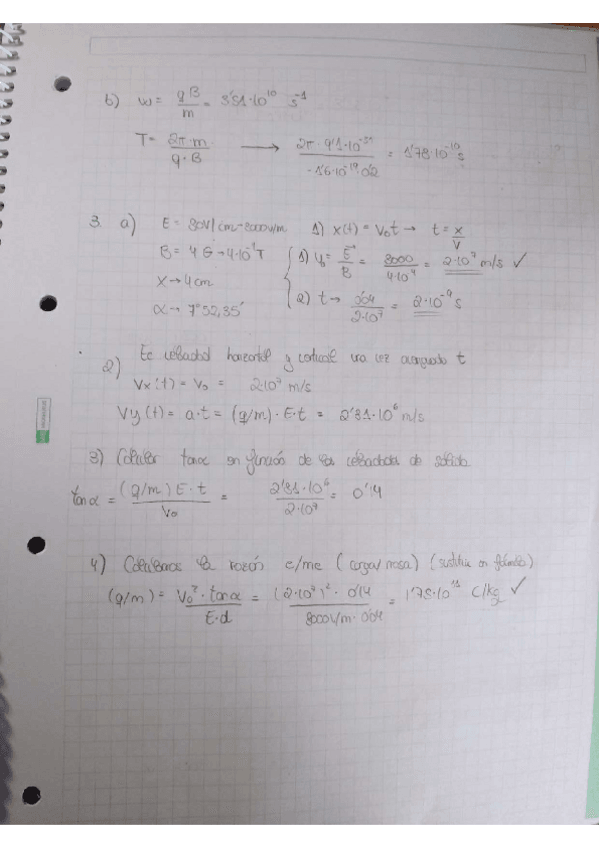 b) w = qB/m = 3'51·10^10 s^-1
T = 2π·m/q·B → 2π·9'1·10^-31/-1'6·10^-19·0'2 = 1'78·10^-10 s
3. a) E = 80V/cm→8000V/m 1) x(t) = V₀t → t = x/V
B = 4 G → 4·10^-4 T 1) V₀ = E/B = 8000/4·10^-4 = 2·10^7 m/s ✓
x → 4cm
α → 7° 52,35' 2) t → 0'04/2·10^7 = 2·10^-9 s
2) velocidad horizontal y vertical una vez t
Vx(t) = V₀ = 2·10^7 m/s
Vy(t) = a·t = (q/m)·E·t = 2'81·10^6 m/s
3) Calcular tanα en función de las velocidades de salida
tanα = (q/m)E·t/V₀ = 2'81·10^6/2·10^7 = 0'14
4) Calculamos la razón e/me (carga/masa) (sustituir en fórmula)
(q/m) = V₀²·tanα/E·d = (2·10^7)²·0'14/8000V/m·0'04 = 1'75·10^11 C/kg ✓